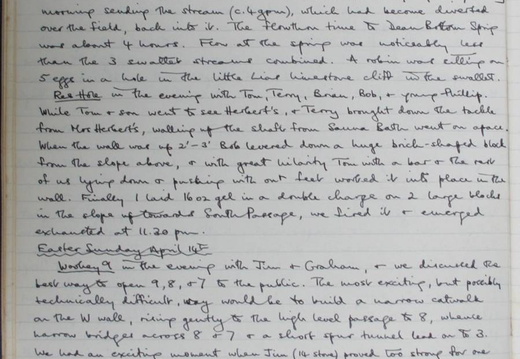 morning sending the stream (c. 4 gpm), which had become diverted
over the field, back into it. The flowthro time to Dean Bottom Spring
was about 4 hours. Flow at the spring was noticeably less
than the 3 swallet streams combined. A robin was sitting on
5 eggs in a hole in the little Lias limestone cliff in the swallet.
Res. Hole in the evening with Tom, Terry, Brian, Bob, & young Phillip.
While Tom & son went to see Herbert's, & Terry brought down the tackle
from Mrs Herbert's, walling up the shaft from Sauna Bath went on apace.
When the wall was up 2'-3' Bob levered down a huge brick-shaped block
from the slope above, & with great hilarity Tom with a bar & the rest
of us lying down & pushing with our feet worked it into place in the
wall. Finally I laid 16 oz gel in a double charge on 2 large blocks
in the slope up towards South Passage, we fired it & emerged
exhausted at 11.30 pm.
Easter Sunday April 14th
Wookey 9 in the evening with Jim & Graham, & we discussed the
best way to open 9, 8, & 7 to the public. The most exciting, but possibly
technically difficult, way would be to build a narrow catwalk
on the W wall, rising gently to the high level passage to 8, whence
narrow bridges across 8 & 7 & a short spur tunnel lead on to 3.
We had an exciting moment when Jim (14 stone) proved too strong for one